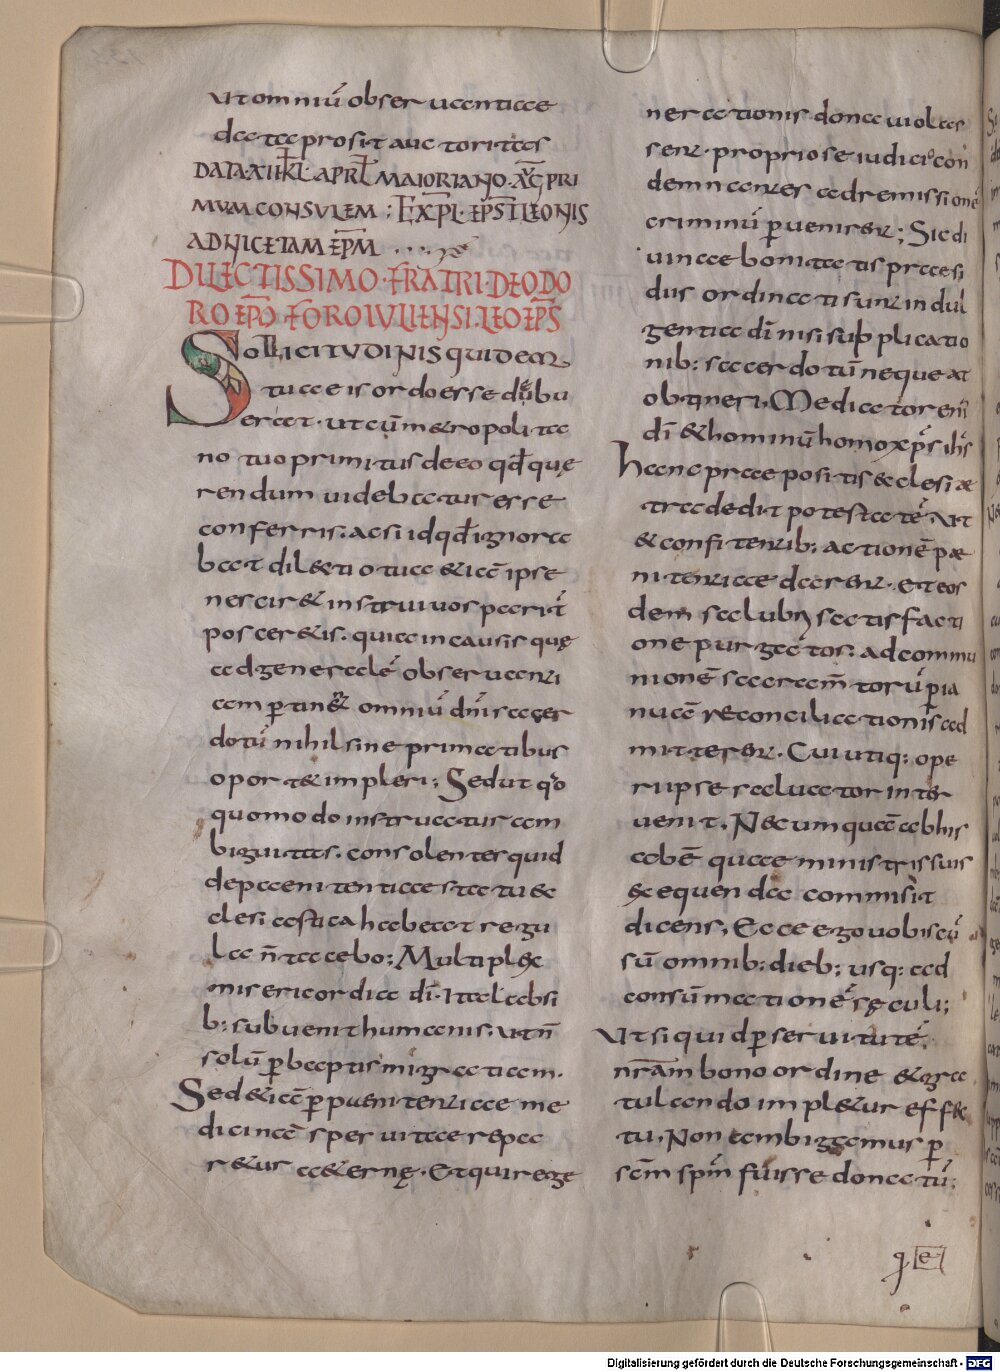 ut omniū obseruantiae
data prosit auctoritas
DATA XII KL̄ APRL̄ MAIORIANO AG̅ PRI
MUM CONSULEM ; EXPL̄ EPS̄T LEONIS
AD NICETAM EPM̄
DILECTISSIMO FRATRI DEODO
RO EPŌ FOROIULIENSI LEO EPS̄
SOLLICITUDINIS quidem
tuae is ordo esse debu
erat. ut cum metropolita
no tuo primitus de eo qđ quę
rendum uidebatur esse
conferris. ac si id qđ ignora
bat dilectio tua etiā ipse
nesciret instrui uos parit̄
posceretis. quia in causis quę
ad generalē obseruanti
am ꝑtinet omniū dn̄i sacer
dotū nihil sine primatibus
oportet impleri; Sed ut qo
quomodo instruatur am
biguitas. consolenter quid
de paenitentiae statu ec
clesiastica habeat regu
la n̄ tacebo; Multiplex
misericordia dī. Ita lapsi
b: subuenit humanis. ut n̄
solū ꝑ baptismi gratiam.
Sed etiā ꝑ paenitentiae me
dicinā spes uitae repa
retur aeternę. Et qui rege
nerationis dona uiolas
sent. proprio se iudicio con
demnantes ad remissionē
criminū ꝑuenirent; Sic di
uinae bonitatis praesi
dus ordinatis unt in dul
gentia dī nisi subplicatio
nib: sacerdotū nequeat
obtineri, Mediator enī
dī et hominū homo xp̄s ih̄s
hanc praepositis ecclesiae
tradedit potestatē. Ut
et confitentib: actionē pae
nitentiae darent. et eos
dem salubri satisfacti
one purgatos. ad commu
nionē sacramentorū ꝑia
nuā reconciliationis ad
mitterent. Cui utiq: ope
ri ipse saluator inter
uenit. Nec umquā ab his
abē quae ministris suis
exequenda commisit
dicens, Ecce ego uobiscū
sū omnib: dieb; usq: ad
consūmationē sęculi;
Ut si quid ꝑ seruitutē
nr̄am bono ordine et gra
tulando impletur effec
tu, Non ambigamus ꝑ
scm̄ spm̄ fuisse donatū;
q. e
Digitalisierung gefördert durch die Deutsche Forschungsgemeinschaft - DFG